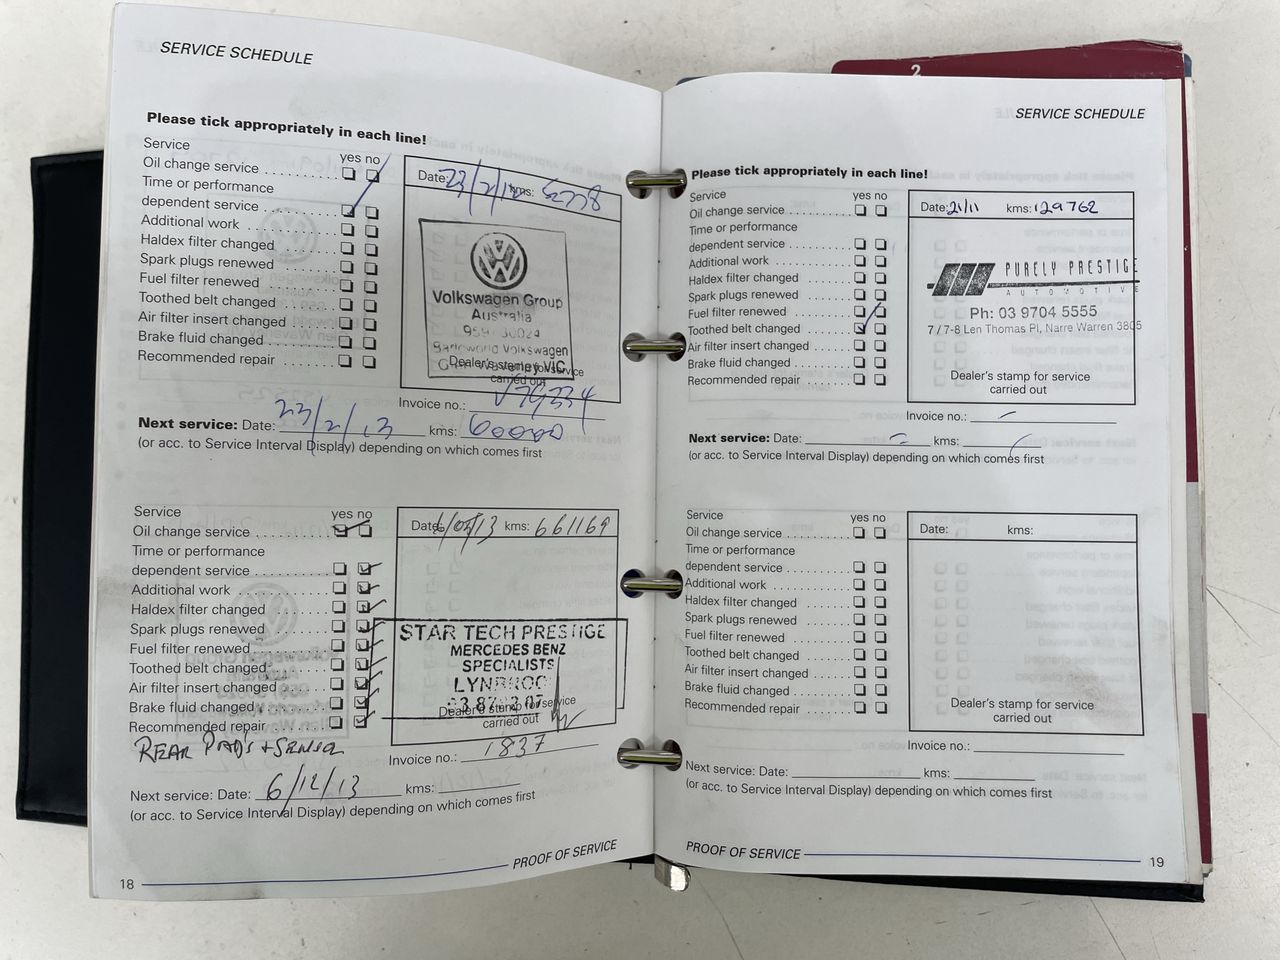 SERVICE SCHEDULE
Please tick appropriately in each line!
Service
yes no
Oil change service
Time or performance
dependent service
Additional work
Haldex filter changed
Spark plugs renewed
Fuel filter renewed
Toothed belt changed
Air filter insert changed
Brake fluid changed
Recommended repair
Date: 23/2/12 kms: 52778
Volkswagen Group
Australia
Volkswagen
VIC
Dealer's stamp for service
carried out
Invoice no.:
Next service: Date: 23/2/13 kms: 60000
(or acc. to Service Interval Display) depending on which comes first
Service
yes no
Oil change service
Time or performance
dependent service
Additional work
Haldex filter changed
Spark plugs renewed
Fuel filter renewed
Toothed belt changed
Air filter insert changed
Brake fluid changed
Recommended repair
REAR PADS + SENSOR
Date: kms: 661169
STAR TECH PRESTIGE
MERCEDES BENZ
SPECIALISTS
Dealer's stamp for service
carried out
Invoice no.: 1837
Next service: Date: 6/12/13 kms:
(or acc. to Service Interval Display) depending on which comes first
PROOF OF SERVICE
18
2
SERVICE SCHEDULE
Please tick appropriately in each line!
Service
yes no
Oil change service
Time or performance
dependent service
Additional work
Haldex filter changed
Spark plugs renewed
Fuel filter renewed
Toothed belt changed
Air filter insert changed
Brake fluid changed
Recommended repair
Date: 21/11 kms: 129762
PURELY PRESTIGE
AUTOMOTIVE
Ph: 03 9704 5555
7/7-8 Len Thomas Pl, Narre Warren 3805
Dealer's stamp for service
carried out
Invoice no.:
Next service: Date: kms:
(or acc. to Service Interval Display) depending on which comes first
Service
yes no
Oil change service
Time or performance
dependent service
Additional work
Haldex filter changed
Spark plugs renewed
Fuel filter renewed
Toothed belt changed
Air filter insert changed
Brake fluid changed
Recommended repair
Date: kms:
Dealer's stamp for service
carried out
Invoice no.:
Next service: Date: kms:
(or acc. to Service Interval Display) depending on which comes first
PROOF OF SERVICE
19